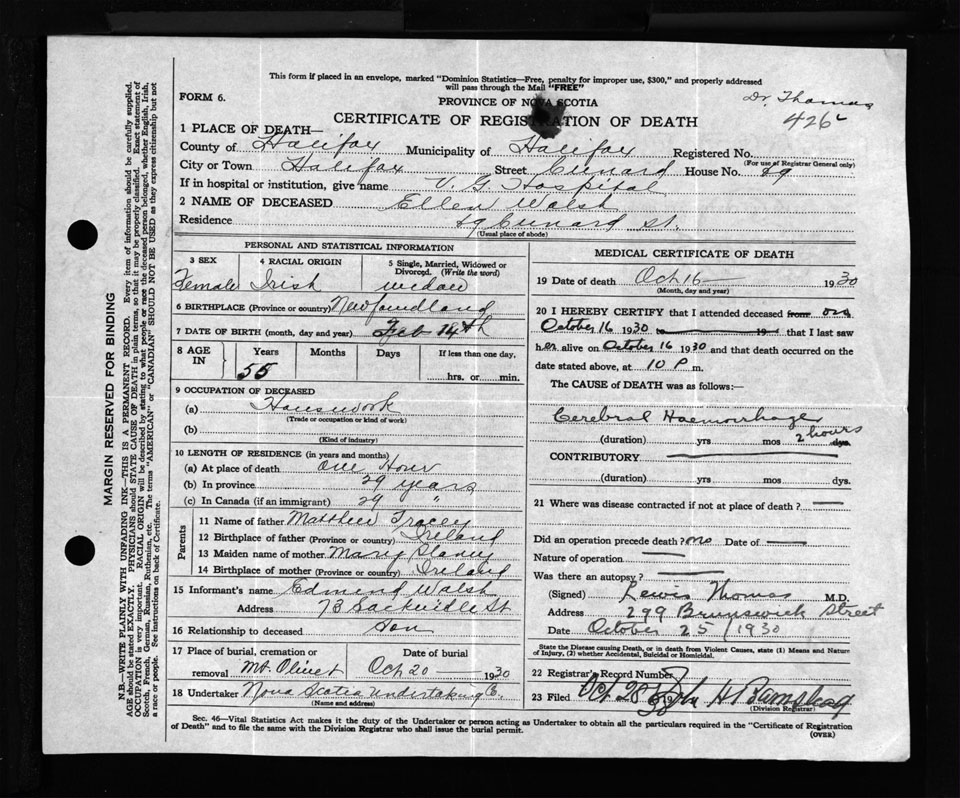 This form if placed in an envelope, marked "Dominion Statistics—Free, penalty for improper use, $300," and properly addressed
will pass through the Mail "FREE"
Dr. Thomas
426
FORM 6.
PROVINCE OF NOVA SCOTIA
CERTIFICATE OF REGISTRATION OF DEATH
1 PLACE OF DEATH—
County of Halifax Municipality of Halifax Registered No.
(For use of Registrar General only)
City or Town Halifax Street Cunard House No. 49
If in hospital or institution, give name V. G. Hospital
2 NAME OF DECEASED Ellen Walsh
Residence 49 Cunard St.
(Usual place of abode)
PERSONAL AND STATISTICAL INFORMATION
3 SEX 4 RACIAL ORIGIN 5 Single, Married, Widowed or Divorced. (Write the word)
Female Irish widow
6 BIRTHPLACE (Province or country) Newfoundland
7 DATE OF BIRTH (month, day and year) Feb 14th
8 AGE IN Years Months Days If less than one day,
55 hrs. or min.
9 OCCUPATION OF DECEASED
(a) Housework
(Trade or occupation or kind of work)
(b)
(Kind of industry)
10 LENGTH OF RESIDENCE (in years and months)
(a) At place of death one Hour
(b) In province 29 years
(c) In Canada (if an immigrant) 29 "
Parents
11 Name of father Matthew Tracey
12 Birthplace of father (Province or country) Ireland
13 Maiden name of mother Mary Slaney
14 Birthplace of mother (Province or country) Ireland
15 Informant's name Edmund Walsh
Address 73 Sackville St
16 Relationship to deceased Son
17 Place of burial, cremation or removal Mt. Olivet Date of burial Oct 20 1930
18 Undertaker Nova Scotia Undertaking Co.
(Name and address)
MEDICAL CERTIFICATE OF DEATH
19 Date of death Oct 16 1930
(Month, day and year)
20 I HEREBY CERTIFY that I attended deceased from on
October 16 1930 to 19 that I last saw
her alive on October 16 1930 and that death occurred on the
date stated above, at 10 P m.
The CAUSE of DEATH was as follows:
Cerebral Haemorrhage
(duration) yrs mos 2 hours dys.
CONTRIBUTORY
(duration) yrs. mos. dys.
21 Where was disease contracted if not at place of death? —
Did an operation precede death? no Date of —
Nature of operation —
Was there an autopsy? —
(Signed) Lewis Thomas M.D.
Address 299 Brunswick Street
Date October 25/1930
State the Disease causing Death, or in death from Violent Causes, state (1) Means and Nature
of Injury, (2) whether Accidental, Suicidal or Homicidal.
22 Registrar's Record Number
23 Filed Oct 28 1930 John H Barnstead
(Division Registrar)
Sec. 46—Vital Statistics Act makes it the duty of the Undertaker or person acting as Undertaker to obtain all the particulars required in the "Certificate of Registration
of Death" and to file the same with the Division Registrar who shall issue the burial permit.
(OVER)
MARGIN RESERVED FOR BINDING
N.B.—WRITE PLAINLY WITH UNFADING INK—THIS IS A PERMANENT RECORD. Every item of information should be carefully supplied.
AGE should be stated EXACTLY. PHYSICIANS should STATE CAUSE OF DEATH in plain terms, so that it may be properly classified. Exact statement of
OCCUPATION is very important. RACIAL ORIGIN will be described by stating to what people or race the deceased person belonged, whether English, Irish,
Scotch, French, German, Russian, Ruthenian, etc. The terms "AMERICAN" or "CANADIAN" SHOULD NOT BE USED as they express citizenship but not
a race or people. See instructions on back of Certificate.